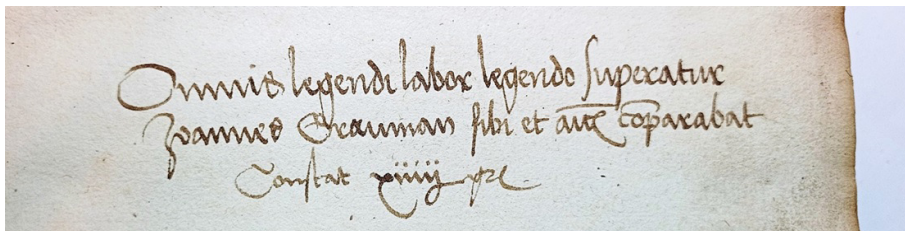 Omnis legendi labor legendo superatur
Joannes Grauman sibi et aītꝭ cōparabat
Constat xiiiij gr̄